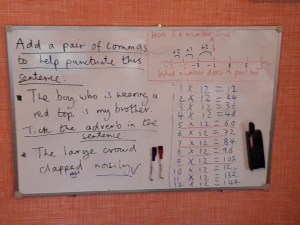 Add a pair of commas
to help punctuate this
sentence:
• The boy who is wearing a
red top is my brother.
Tick the adverb in the
sentence
• The large crowd
clapped noisily ✓
Here is a number line
What number does
1 x 12 = 12
2 x 12 = 24
3 x 12 = 36
4 x 12 = 48
5 x 12 = 60
6 x 12 = 72
7 x 12 = 84
8 x 12 = 96
9 x 12 =
10 x 12 =
11 x 12 = 132
12 x 12 = 144